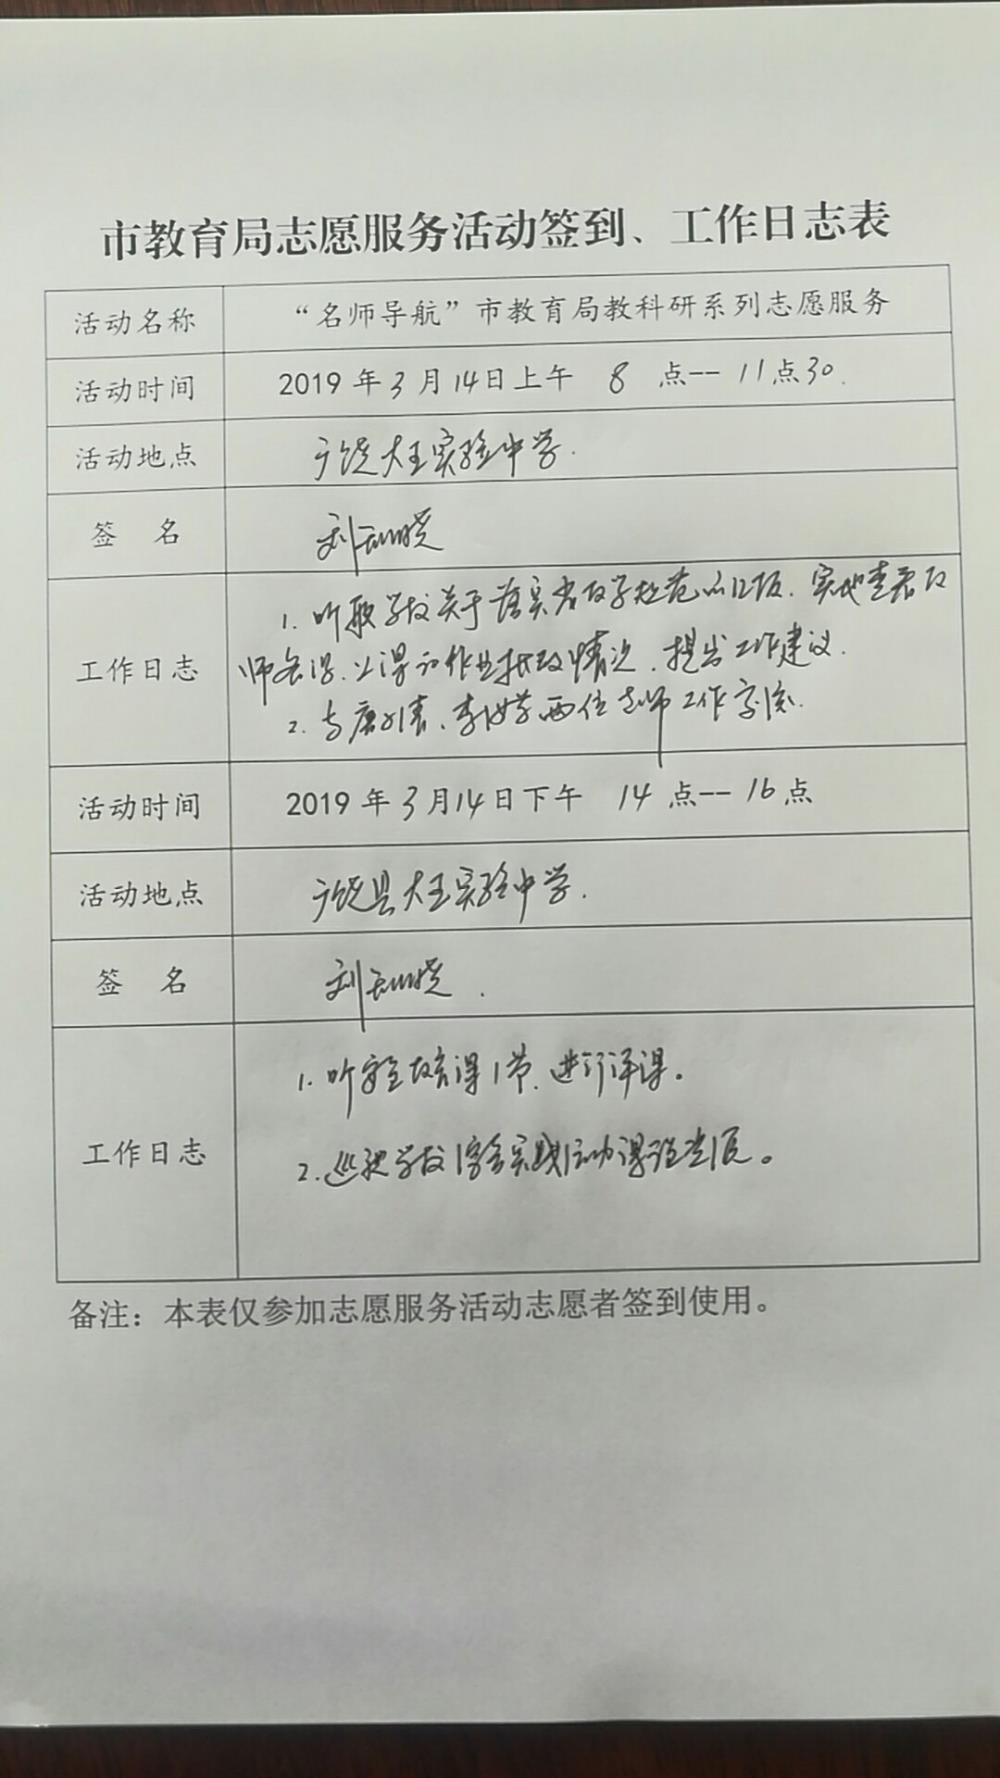 市教育局志愿服务活动签到、工作日志表
活动名称 “名师导航”市教育局教科研系列志愿服务
活动时间 2019年3月14日上午 8 点--11点30.
活动地点 广饶大王实验中学.
签 名 刘
1. 听取学校关于落实省教学规范的汇报.实地查看教
工作日志 师备课、上课和作业批改情况,提出工作建议.
2. 与 两位老师工作交流.
活动时间 2019年3月14日下午 14点--16点
活动地点 广饶县大王实验中学.
签 名 刘
1. 听安全教育课1节,进行评课。
工作日志
2. 巡视学校综合实践活动课程进展。
备注：本表仅参加志愿服务活动志愿者签到使用。